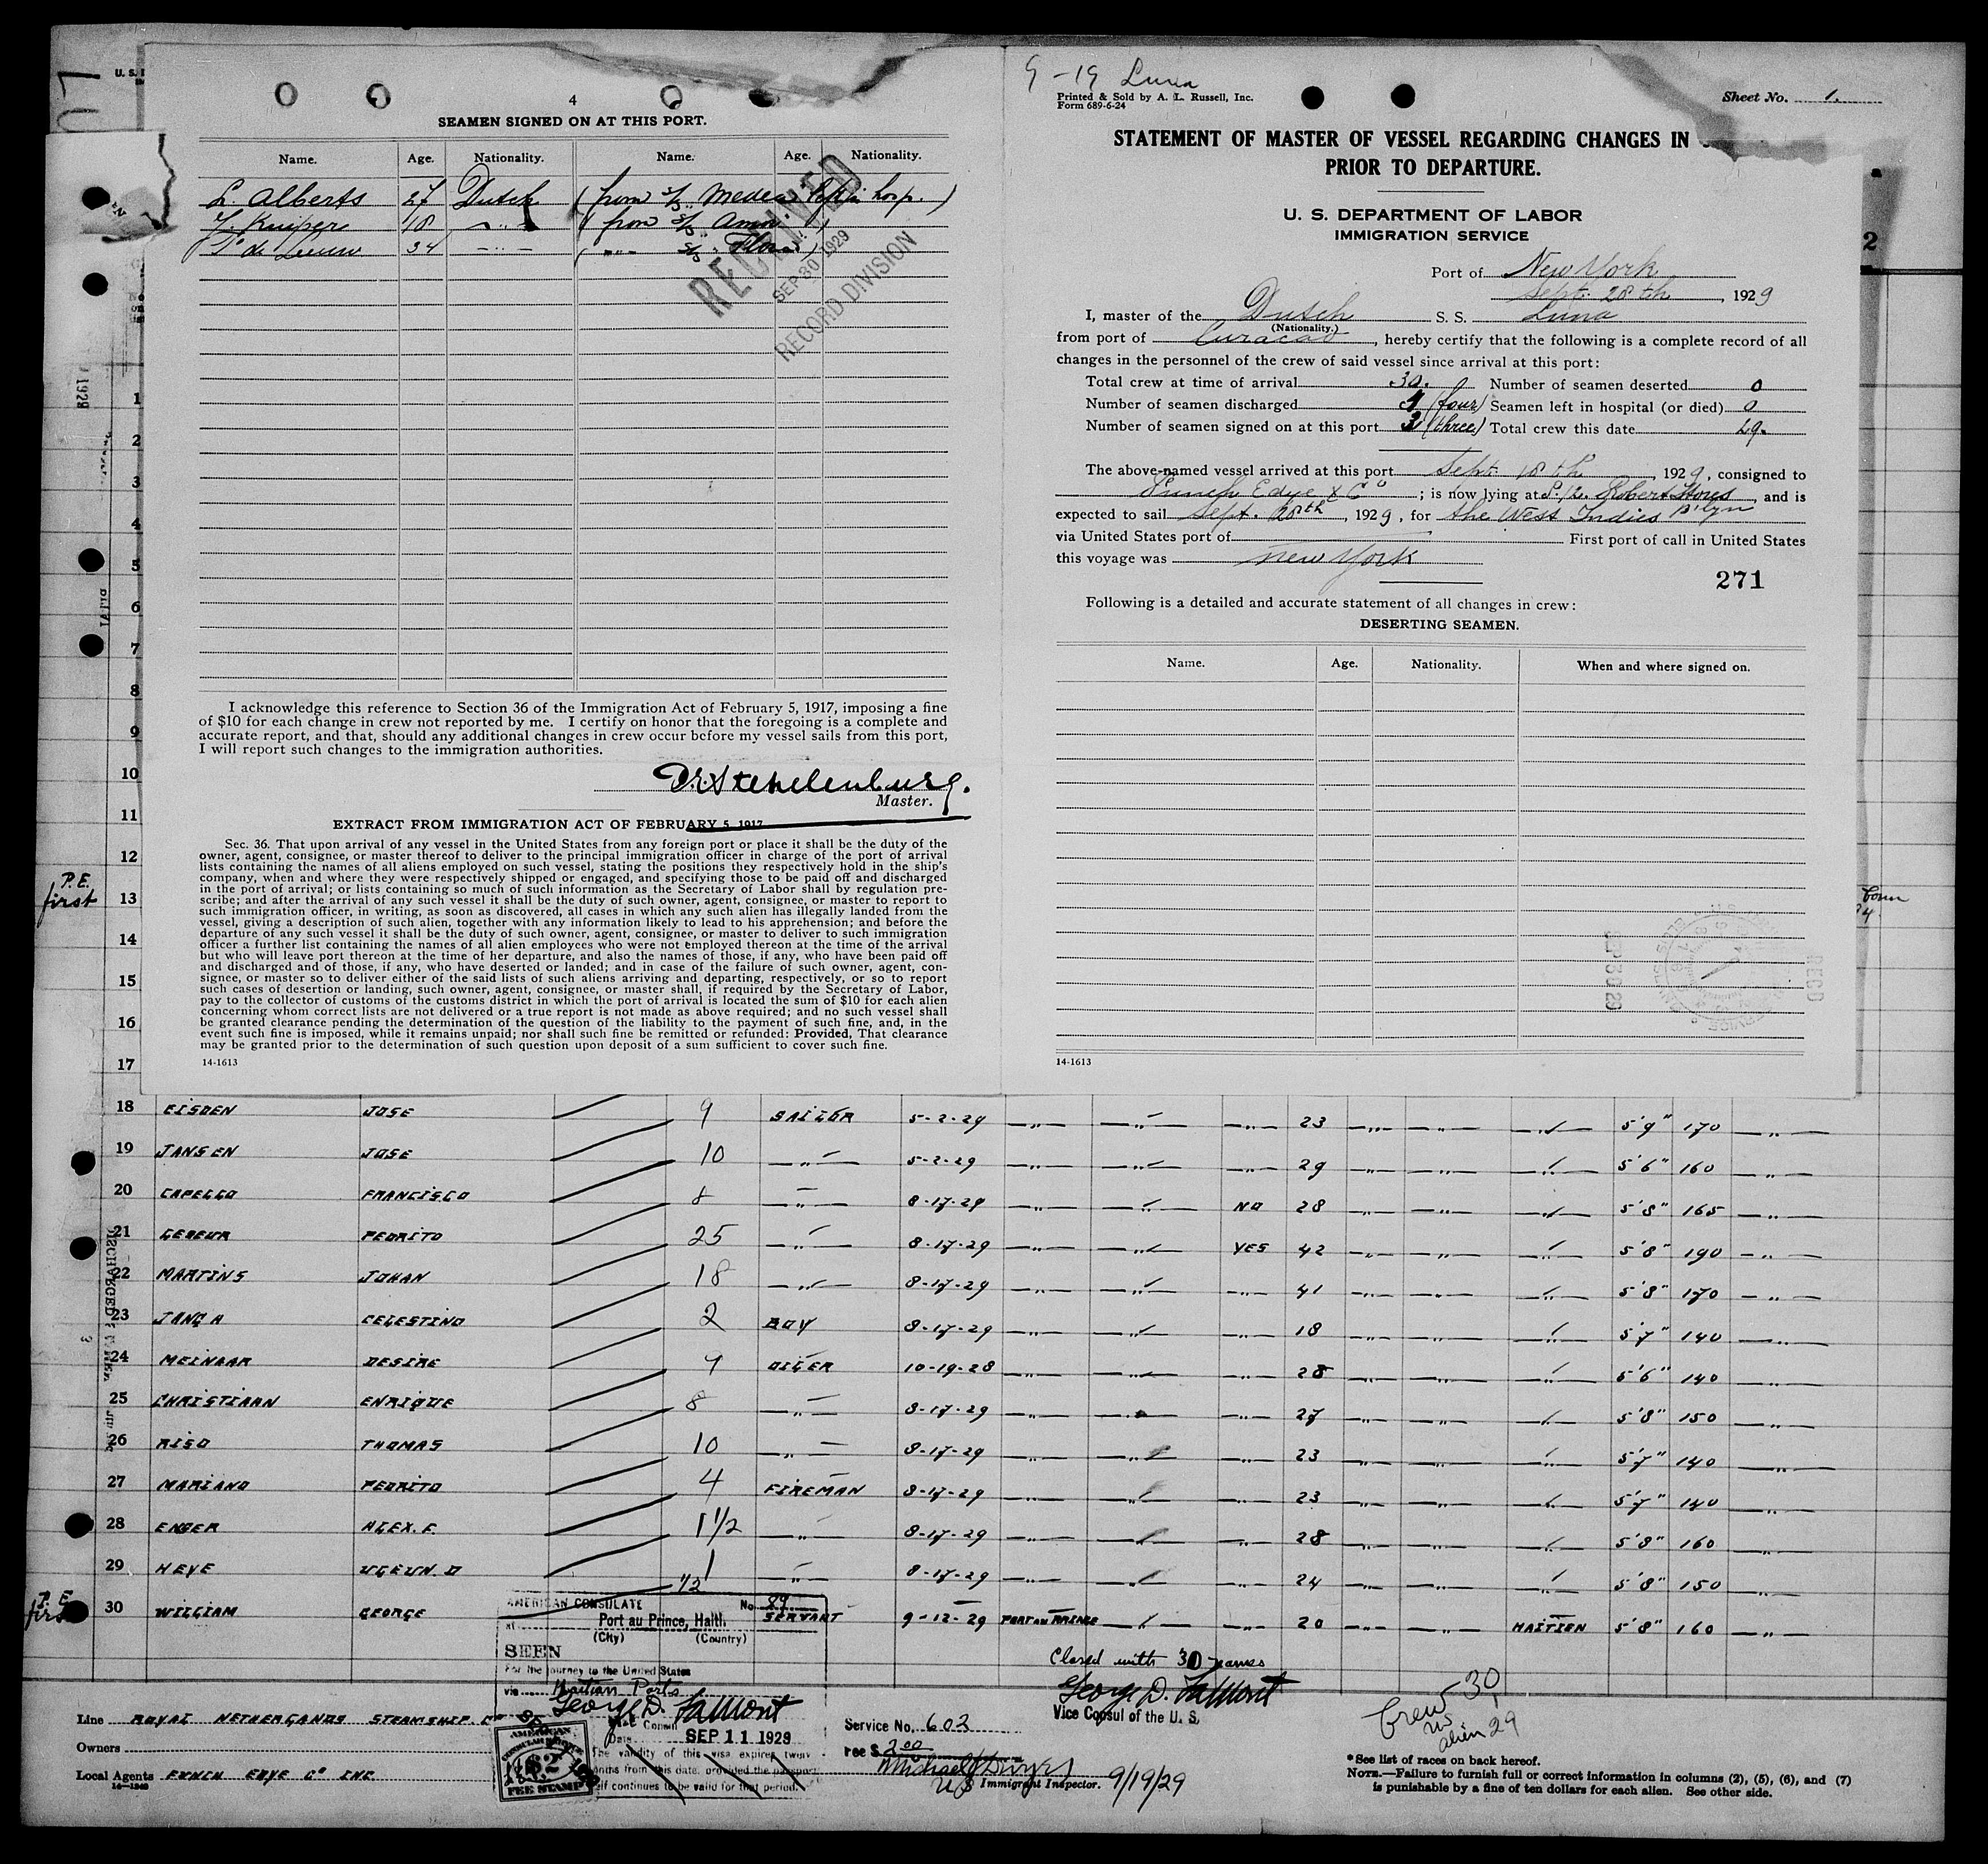 4
SEAMEN SIGNED ON AT THIS PORT.
Name. Age. Nationality. Name. Age. Nationality.
L. Alberts 27 Dutch (from s/s Medea left in hosp.)
J. Kuiper 18 -"- (from s/s
P. de Leeuw 34 -"- ( -"- s/s Flora)
RECEIVED
SEP 30 1929
RECORD DIVISION
I acknowledge this reference to Section 36 of the Immigration Act of February 5, 1917, imposing a fine
of $10 for each change in crew not reported by me. I certify on honor that the foregoing is a complete and
accurate report, and that, should any additional changes in crew occur before my vessel sails from this port,
I will report such changes to the immigration authorities.
Master.
EXTRACT FROM IMMIGRATION ACT OF FEBRUARY 5, 1917
Sec. 36. That upon arrival of any vessel in the United States from any foreign port or place it shall be the duty of the
owner, agent, consignee, or master thereof to deliver to the principal immigration officer in charge of the port of arrival
lists containing the names of all aliens employed on such vessel, stating the positions they respectively hold in the ship's
company, when and where they were respectively shipped or engaged, and specifying those to be paid off and discharged
in the port of arrival; or lists containing so much of such information as the Secretary of Labor shall by regulation pre-
scribe; and after the arrival of any such vessel it shall be the duty of such owner, agent, consignee, or master to report to
such immigration officer, in writing, as soon as discovered, all cases in which any such alien has illegally landed from the
vessel, giving a description of such alien, together with any information likely to lead to his apprehension; and before the
departure of any such vessel it shall be the duty of such owner, agent, consignee, or master to deliver to such immigration
officer a further list containing the names of all alien employees who were not employed thereon at the time of the arrival
but who will leave port thereon at the time of her departure, and also the names of those, if any, who have been paid off
and discharged and of those, if any, who have deserted or landed; and in case of the failure of such owner, agent, con-
signee, or master so to deliver either of the said lists of such aliens arriving and departing, respectively, or so to report
such cases of desertion or landing, such owner, agent, consignee, or master shall, if required by the Secretary of Labor,
pay to the collector of customs of the customs district in which the port of arrival is located the sum of $10 for each alien
concerning whom correct lists are not delivered or a true report is not made as above required; and no such vessel shall
be granted clearance pending the determination of the question of the liability to the payment of such fine, and, in the
event such fine is imposed, while it remains unpaid; nor shall such fine be remitted or refunded: Provided, That clearance
may be granted prior to the determination of such question upon deposit of a sum sufficient to cover such fine.
14-1613
9-19 Luna
Printed & Sold by A. L. Russell, Inc.
Form 689-6-24
Sheet No. 1.
STATEMENT OF MASTER OF VESSEL REGARDING CHANGES IN
PRIOR TO DEPARTURE.
U. S. DEPARTMENT OF LABOR
IMMIGRATION SERVICE
Port of New York
Sept. 28th, 1929
I, master of the Dutch S. S. Luna
(Nationality.)
from port of Curacao, hereby certify that the following is a complete record of all
changes in the personnel of the crew of said vessel since arrival at this port:
Total crew at time of arrival 30. Number of seamen deserted 0
Number of seamen discharged 4 (four) Seamen left in hospital (or died) 0
Number of seamen signed on at this port 3 (three) Total crew this date 29.
The above-named vessel arrived at this port Sept. 18th, 1929, consigned to
Funch Edye & Co; is now lying at P. 12. Robert Stores, and is
B'lyn
expected to sail Sept. 28th, 1929, for the West Indies
via United States port of First port of call in United States
this voyage was New York
271
Following is a detailed and accurate statement of all changes in crew:
DESERTING SEAMEN.
Name. Age. Nationality. When and where signed on.
REC'D
SEP 30 29
14-1613
P.E.
first
1
2
3
4
5
6
7
8
9
10
11
12
13
14
15
16
17
18 EISDEN JOSE 9 SAILOR 5-2-29 -"- -"- -"- 23 -"- -"- -"- 5'9" 170 -"-
19 JANSEN JOSE 10 -"- 5-2-29 -"- -"- -"- 29 -"- -"- -"- 5'6" 160
20 CAPELLO FRANCISCO 8 -"- 8-17-29 -"- -"- NO 28 -"- -"- -"- 5'8" 165 -"-
21 GEBEUR PEDRITO 25 -"- 8-17-29 -"- -"- YES 42 -"- -"- -"- 5'8" 190 -"-
22 MARTINS JOHAN 18 -"- 8-17-29 -"- -"- -"- 41 -"- -"- -"- 5'8" 170 -"-
23 JANGA CELESTINO 2 BOY 8-17-29 -"- -"- -"- 18 -"- -"- -"- 5'7" 140 -"-
24 MEINAAR DESIRE 9 OILER 10-19-28 -"- -"- -"- 28 -"- -"- -"- 5'6" 140 -"-
25 CHRISTIAAN ENRIQUE 8 -"- 8-17-29 -"- -"- -"- 27 -"- -"- -"- 5'8" 150 -"-
26 RISO THOMAS 10 -"- 8-17-29 -"- -"- -"- 23 -"- -"- -"- 5'7" 140 -"-
27 MARIANO PEDRITO 4 FIREMAN 8-17-29 -"- -"- -"- 23 -"- -"- -"- 5'7" 140 -"-
28 ENSER ALEX. E. 1 1/2 -"- 8-17-29 -"- -"- -"- 28 -"- -"- -"- 5'8" 160 -"-
29 HEYE 1 -"- 8-17-29 -"- -"- -"- 24 -"- -"- -"- 5'8" 150 -"-
P.E.
first
30 WILLIAM GEORGE 1/2 SERVANT 9-12-29 PORT AU PRINCE -"- -"- 20 -"- -"- HAITIEN 5'8" 160 -"-
AMERICAN CONSULATE No. 89
at Port au Prince, Haiti.
(City) (Country)
SEEN
For the journey to the United States
via Haitian Ports
George D. LaMont
Vice Consul
Date SEP 11 1929
The validity of this visa expires twelve
months from this date, provided the passport
itself continues to be valid for that period.
AMERICAN
CONSULAR SERVICE
$2
FEE STAMP
Closed with 30 names
George D. LaMont
Vice Consul of the U. S.
Service No. 602
Fee $ 2.00
Immigrant Inspector. 9/19/29
Crew 30
US 1
alien 29
Line ROYAL NETHERLANDS STEAMSHIP. Co
Owners
Local Agents FUNCH EDYE Co INC
14-1949
*See list of races on back hereof.
NOTE.—Failure to furnish full or correct information in columns (2), (5), (6), and (7)
is punishable by a fine of ten dollars for each alien. See other side.